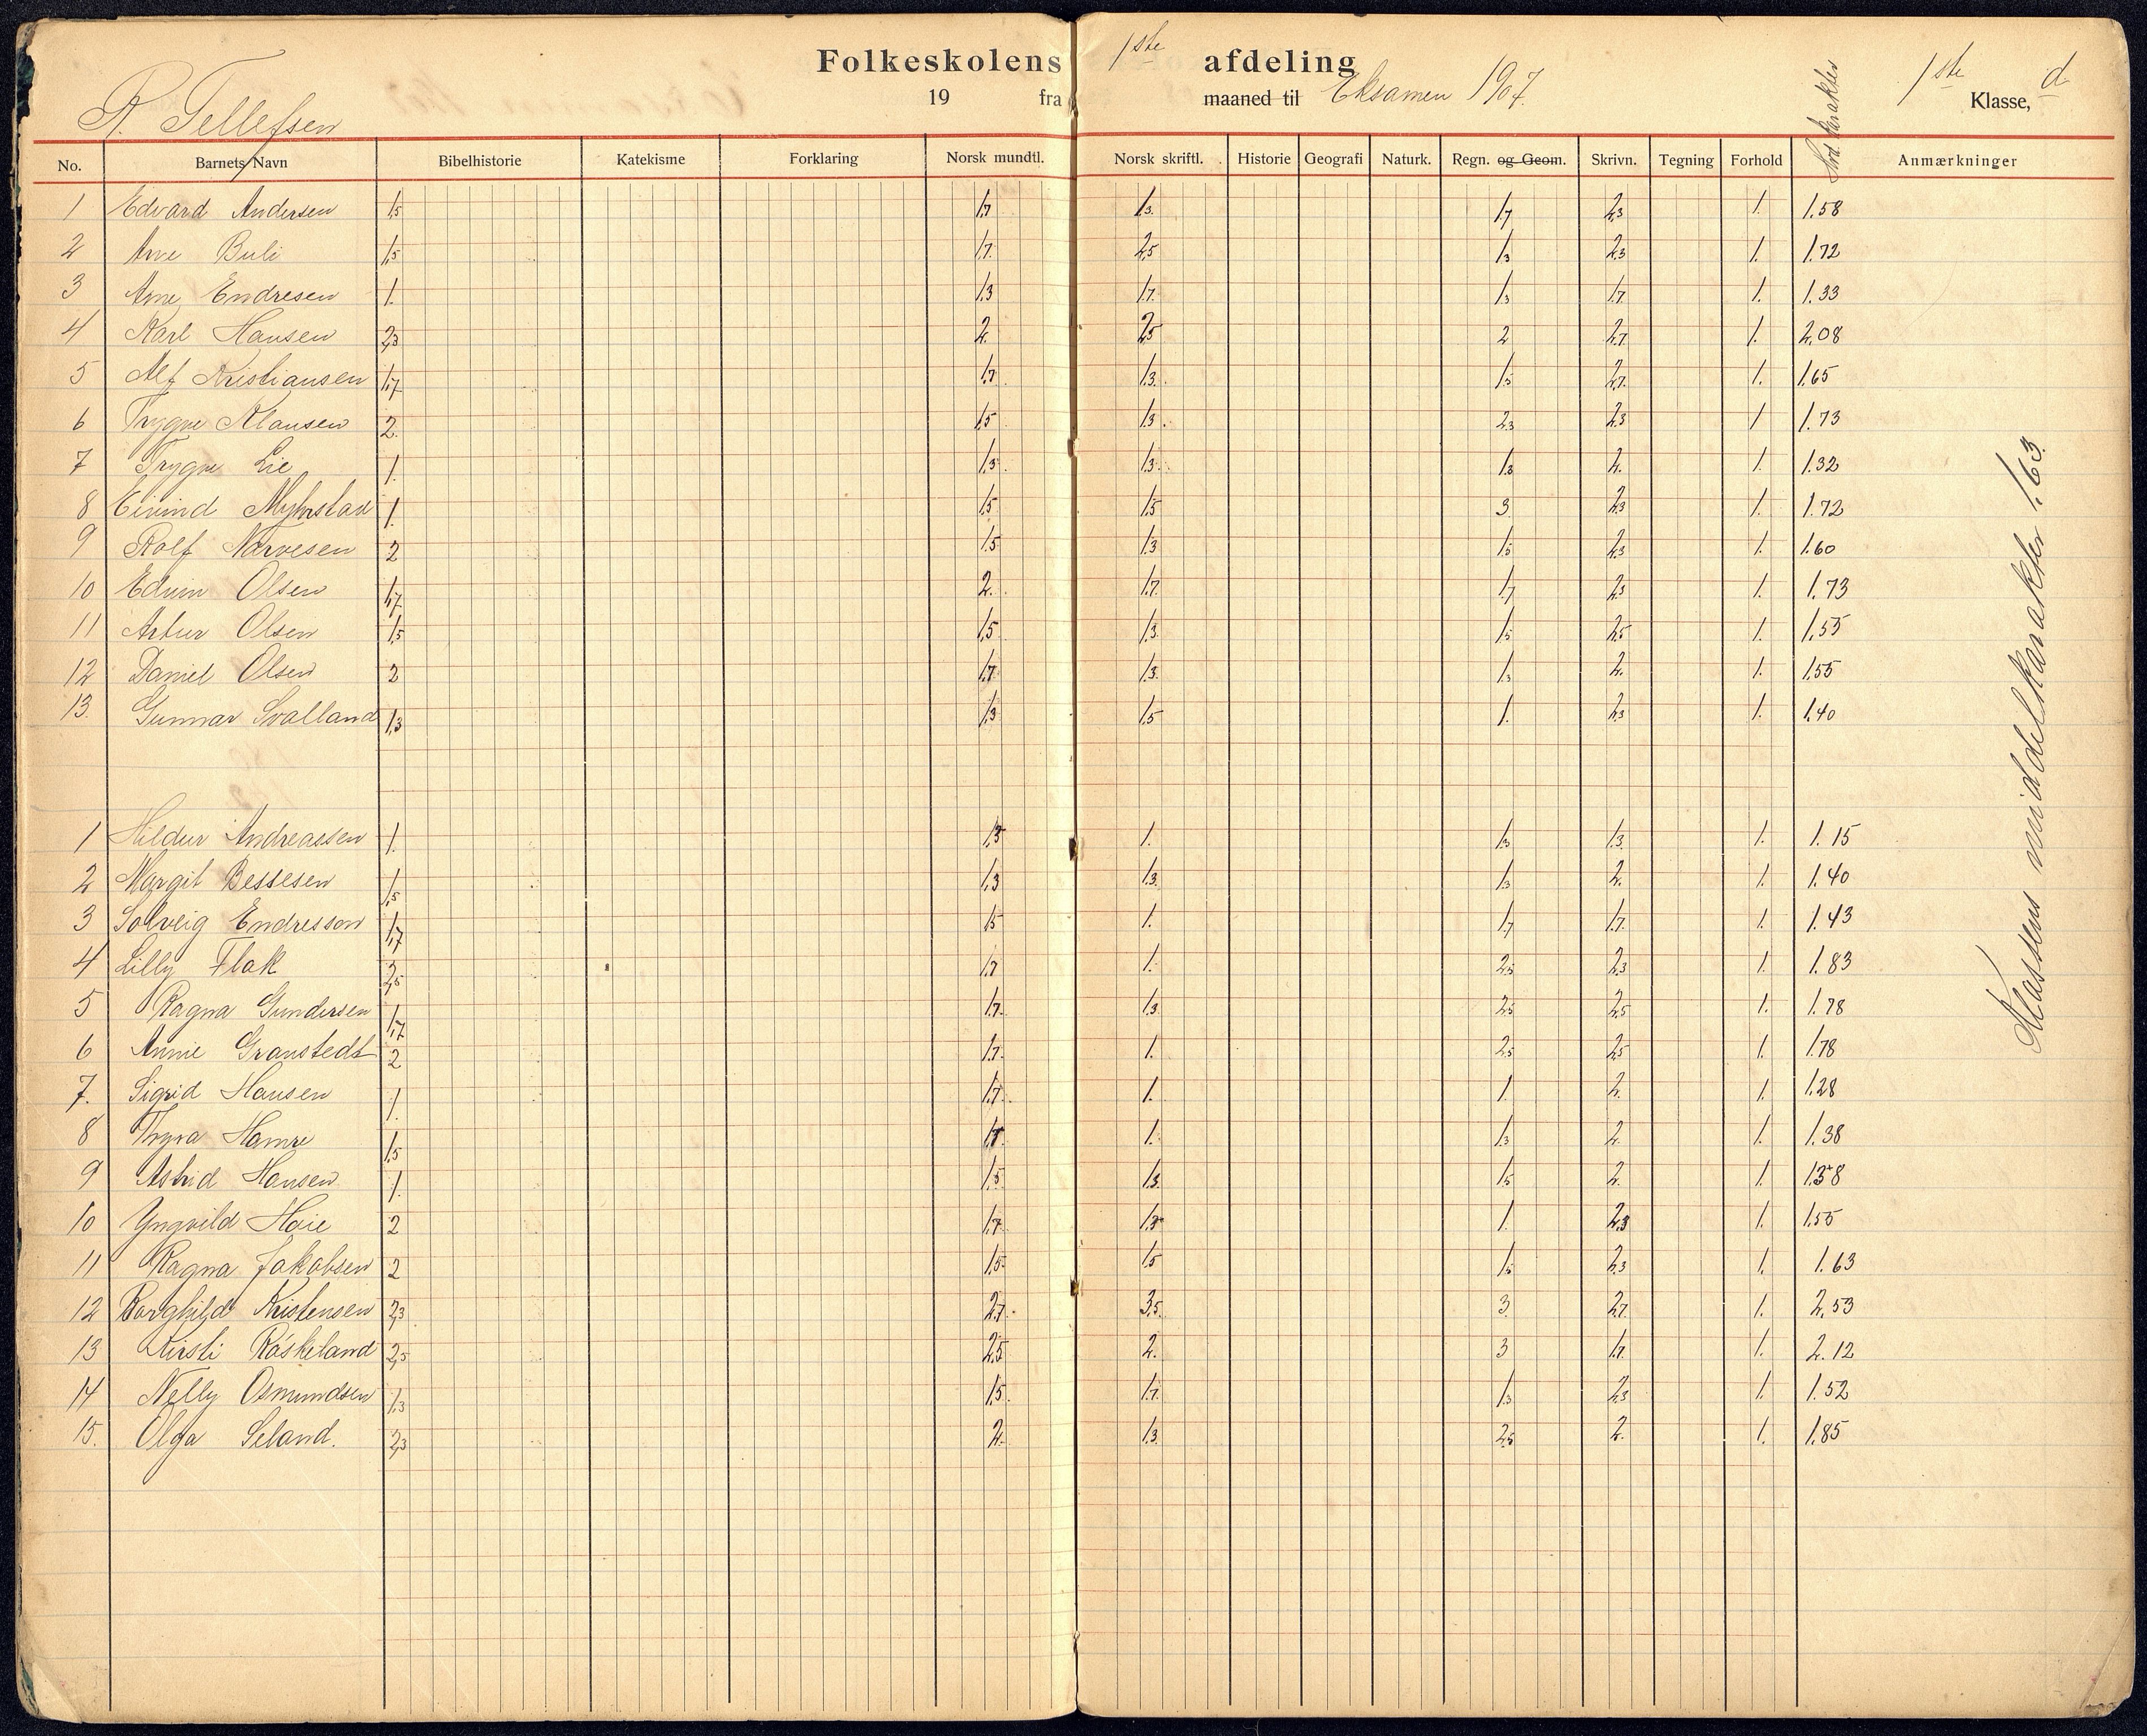 Folkeskolens 1ste afdeling
R. Tellefsen
19 fra maaned til Eksamen 1907. 1ste Klasse, d
No. Barnets Navn Bibelhistorie Katekisme Forklaring Norsk mundtl. Norsk skriftl. Historie Geografi Naturk. Regn. og Geom. Skrivn. Tegning Forhold Anmærkninger
1 Edvard Andersen 1,5 1,7 1,3 1,7 2,3 1. 1.58
2 Arne Buli 1,5 1,7. 2,5 1,3 2,3 1. 1.72
3 Arne Endresen 1. 1,3 1,7. 1,3 1,7. 1. 1.33
4 Karl Hansen 2,3 2. 2,5 2 2,7. 1. 2,08
5 Alf Kristiansen 1,7 1,7. 1,3. 1,5 2,7. 1. 1.65
6 Trygve Klausen 2. 1,5 1,3. 2,3 2,3 1 1.73
7 Trygve Lie 1. 1,3. 1,3. 1,3 2. 1. 1.32
8 Eivind Myhrstad 1. 1,5 1,5 3. 2,3 1. 1.72
9 Rolf Narvesen 2 1,5 1,3 1,5 2,3 1. 1.60
10 Edvin Olsen 1,7 2. 1,7. 1,7 2,3 1. 1.73
11 Artur Olsen 1,5 1,5 1,3. 1,5 2,5 1. 1,55
12 Daniel Olsen 2 1,7 1,3. 1,3 2. 1. 1,55
13. Gunnar Svalland 1,3 1,3 1,5 1. 2,3 1. 1,40
1 Hildur Andreassen 1. 1,3 1. 1,3 1,3. 1. 1.15
2 Margit Bessesen 1,5 1,3 1,3. 1,3 2. 1. 1.40
3 Solveig Endresson 1,7 1,5 1. 1,7 1,7. 1. 1.43
4 Lilly Flak 2,5 1,7 1. 2,5 2,3 1. 1.83
5 Ragna Gundersen 1,7 1,7. 1,3. 2,5 2,5 1. 1.78
6 Annie Granstedt 2 1,7. 1. 2,5 2,5 1. 1.78
7. Sigrid Hansen 1. 1,7. 1. 1. 2. 1. 1.28
8 Thyra Hamre 1,5 1,5. 1. 1,3 2. 1. 1.38
9 Astrid Hansen 1. 1,5 1,3. 1,5 2. 1. 1.38
10 Yngvild Høie 2 1,7. 1,3 1. 2,3 1. 1.55
11 Ragna Jakobsen 2 1,5 1,5 1,5 2,3 1. 1.63
12 Borghild Kristensen 2,3 2,7. 3,5. 3. 2,7. 1. 2,53
13 Kirsti Råskeland 2,5 2,5 2. 3 1,7. 1. 2.12
14 Nelly Osmundsen 1,3 1,5. 1,7. 1,3 2,3 1. 1.52
15. Olga Seland. 2,3 2. 1,3. 2,5 2. 1. 1.85
Klassens middelkarakter 1.63.